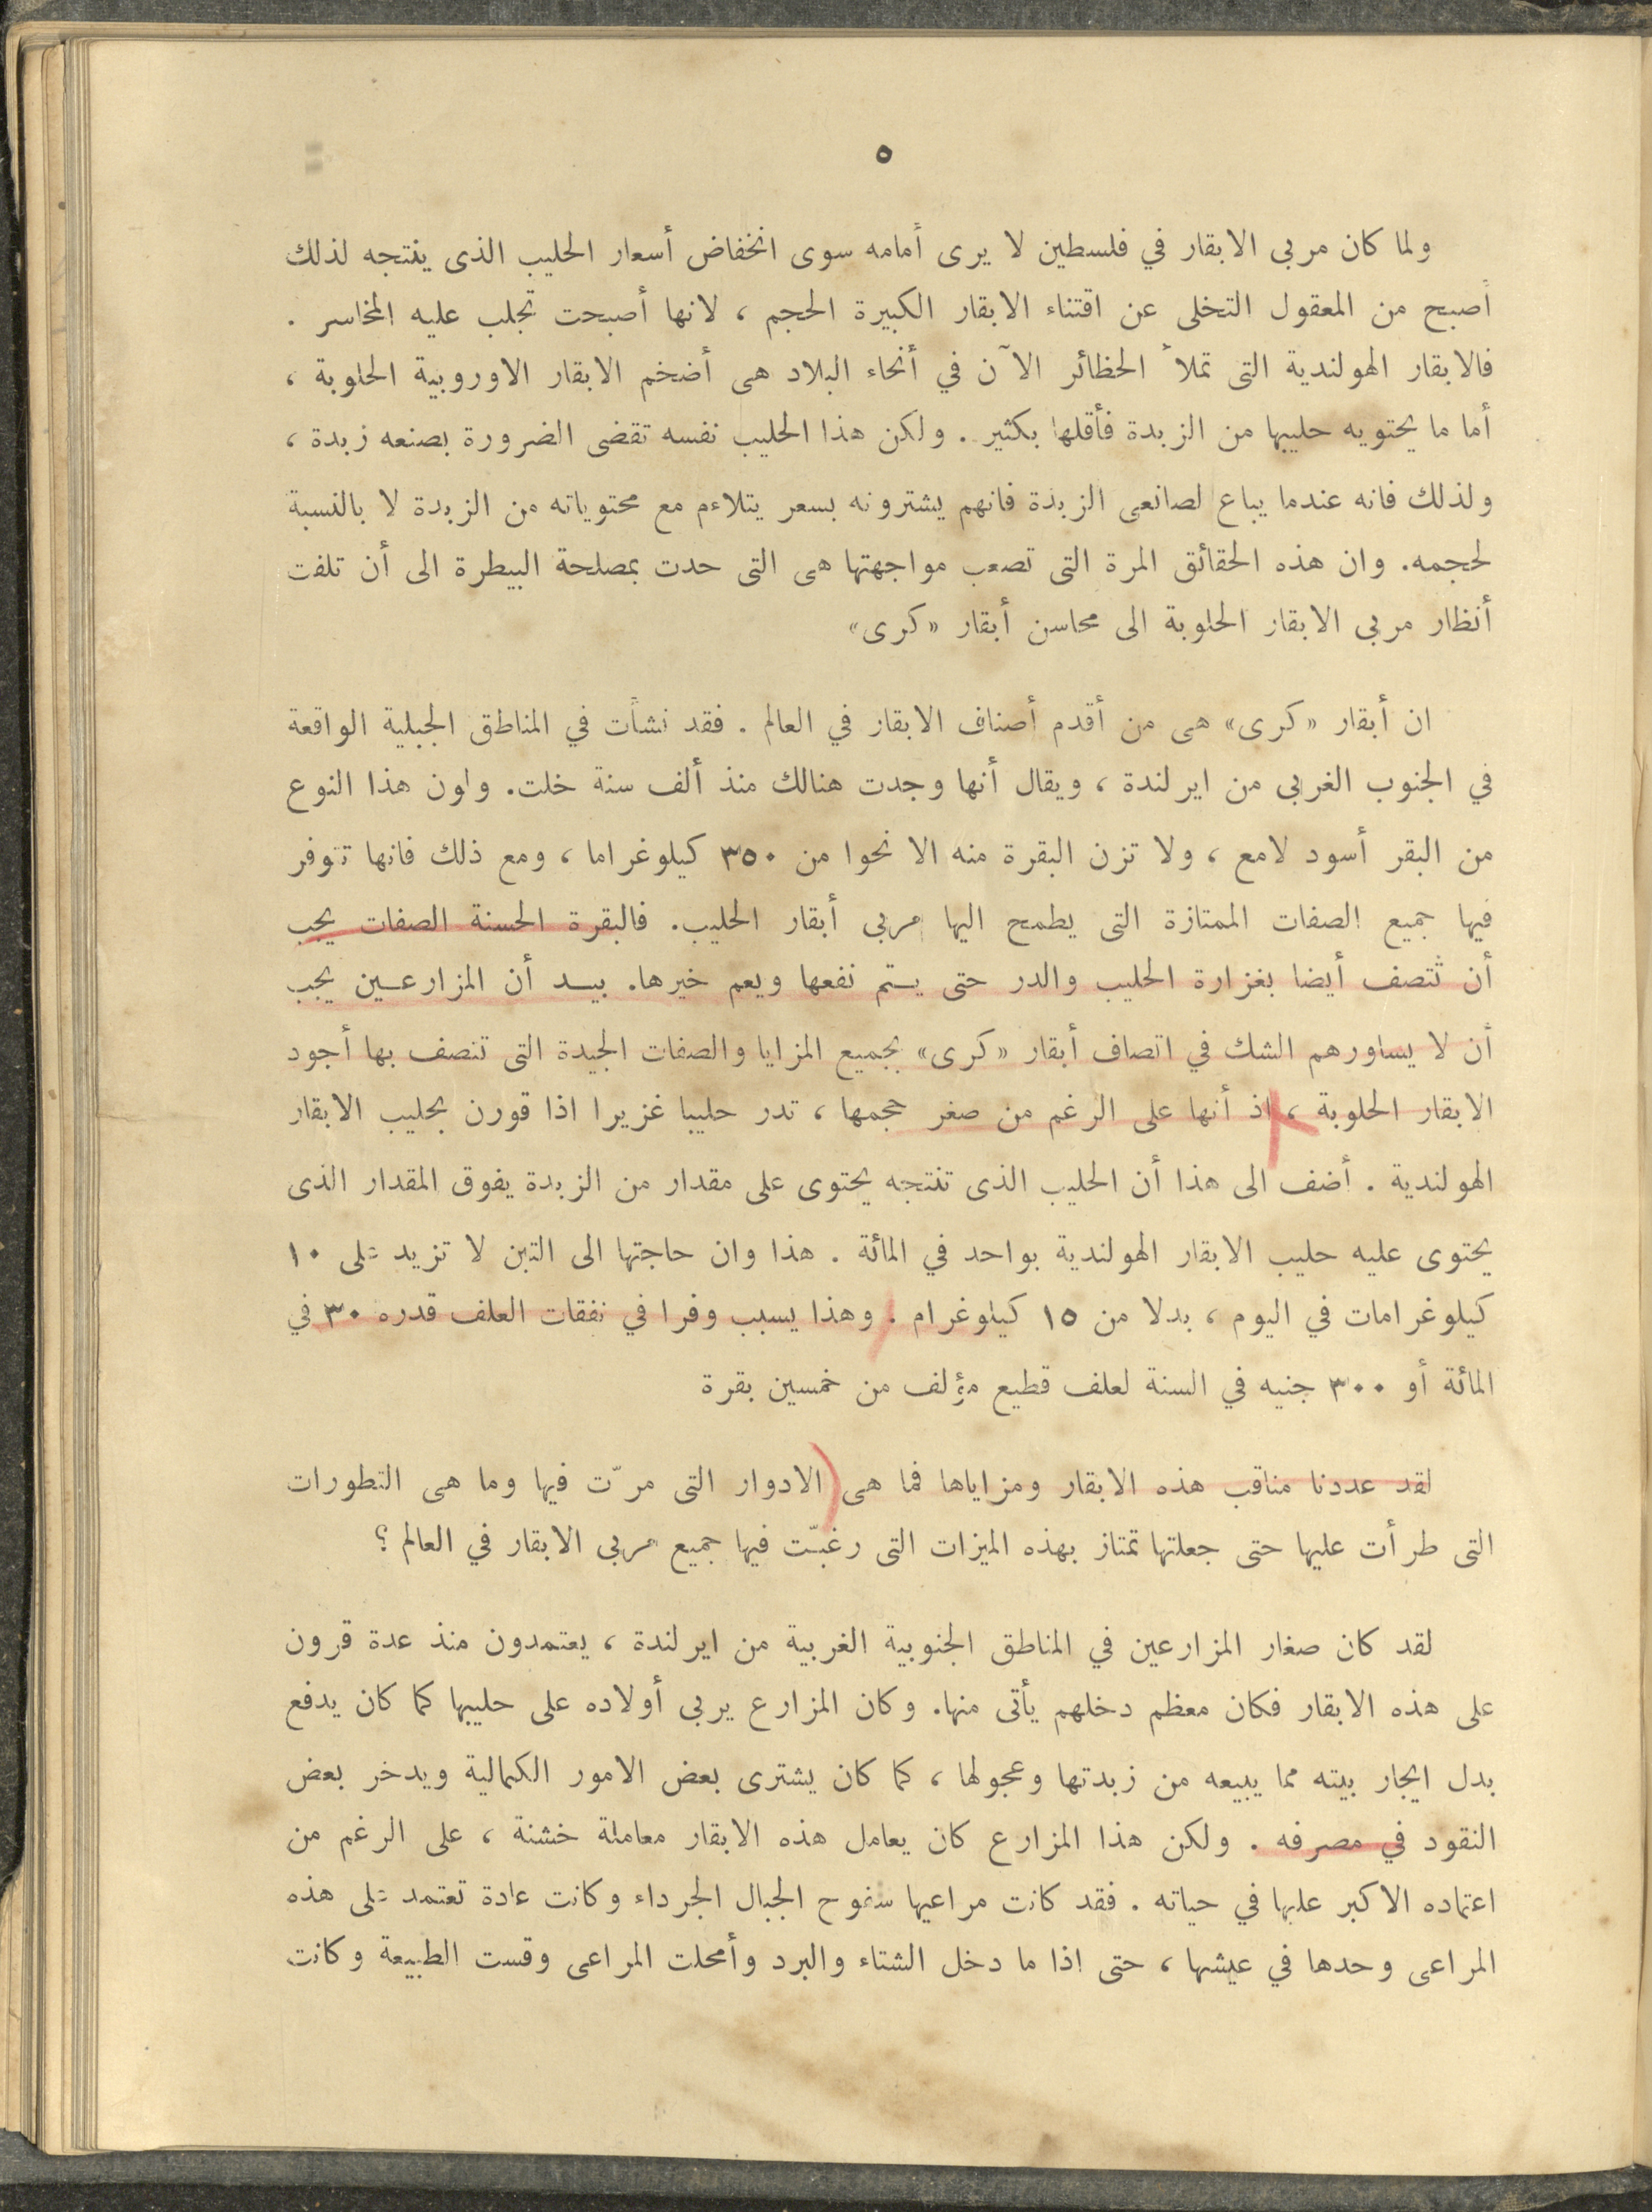 ٥
ولما كان مربى الابقار في فلسطين لا يرى أمامه سوى انخفاض أسعار الحليب الذى ينتجه لذلك
أصبح من المعقول التخلى عن اقتناء الابقار الكبيرة الحجم ، لانها أصبحت تجلب عليه المخاسر .
فالابقار الهولندية التى تملأ الحظائر الآن في أنحاء البلاد هى أضخم الابقار الاوروبية الحلوبة ،
أما ما يحتويه حليبها من الزبدة فأقلها بكثير . ولكن هذا الحليب نفسه تقضى الضرورة بصنعه زبدة ،
ولذلك فانه عندما يباع لصانعى الزبدة فانهم يشترونه بسعر يتلاءم مع محتوياته من الزبدة لا بالنسبة
لحجمه. وان هذه الحقائق المرة التى تصعب مواجهتها هى التى حدت بمصلحة البيطرة الى أن تلفت
أنظار مربى الابقار الحلوبة الى محاسن أبقار «كرى»
ان أبقار «كرى» هى من أقدم أصناف الابقار في العالم . فقد نشأت في المناطق الجبلية الواقعة
في الجنوب الغربى من ايرلندة ، ويقال أنها وجدت هنالك منذ ألف سنة خلت. ولون هذا النوع
من البقر أسود لامع ، ولا تزن البقرة منه الا نحوا من ٣٥٠ كيلوغراما ، ومع ذلك فانها تتوفر
فيها جميع الصفات الممتازة التى يطمح اليها مربى أبقار الحليب. فالبقرة الحسنة الصفات يجب
أن تتصف أيضا بغزارة الحليب والدر حتى يتم نفعها ويعم خيرها. بيد أن المزارعين يجب
أن لا يساورهم الشك في اتصاف أبقار «كرى» بجميع المزايا والصفات الجيدة التى تتصف بها أجود
الابقار الحلوبة ، اذ أنها على الرغم من صغر حجمها ، تدر حليبا غزيرا اذا قورن بحليب الابقار
الهولندية . أضف الى هذا أن الحليب الذى تنتجه يحتوى على مقدار من الزبدة يفوق المقدار الذى
يحتوى عليه حليب الابقار الهولندية بواحد في المائة . هذا وان حاجتها الى التبن لا تزيد على ١٠
كيلوغرامات في اليوم ، بدلا من ١٥ كيلوغرام . وهذا يسبب وفرا في نفقات العلف قدره ٣٠ في
المائة أو ٣٠٠ جنيه في السنة لعلف قطيع مؤلف من خمسين بقرة
لقد عددنا مناقب هذه الابقار ومزاياها فما هى الادوار التى مرّت فيها وما هى التطورات
التى طرأت عليها حتى جعلتها تمتاز بهذه الميزات التى رغبّت فيها جميع مربى الابقار في العالم ؟
لقد كان صغار المزارعين في المناطق الجنوبية الغربية من ايرلندة ، يعتمدون منذ عدة قرون
على هذه الابقار فكان معظم دخلهم يأتى منها. وكان المزارع يربى أولاده على حليبها كما كان يدفع
بدل ايجار بيته مما يبيعه من زبدتها وعجولها ، كما كان يشترى بعض الامور الكمالية ويدخر بعض
النقود في مصرفه . ولكن هذا المزارع كان يعامل هذه الابقار معاملة خشنة ، على الرغم من
اعتماده الاكبر عليها في حياته . فقد كانت مراعيها سفوح الجبال الجرداء وكانت عادة تعتمد على هذه
المراعى وحدها في عيشها ، حتى اذا ما دخل الشتاء والبرد وأمحلت المراعى وقست الطبيعة وكانت